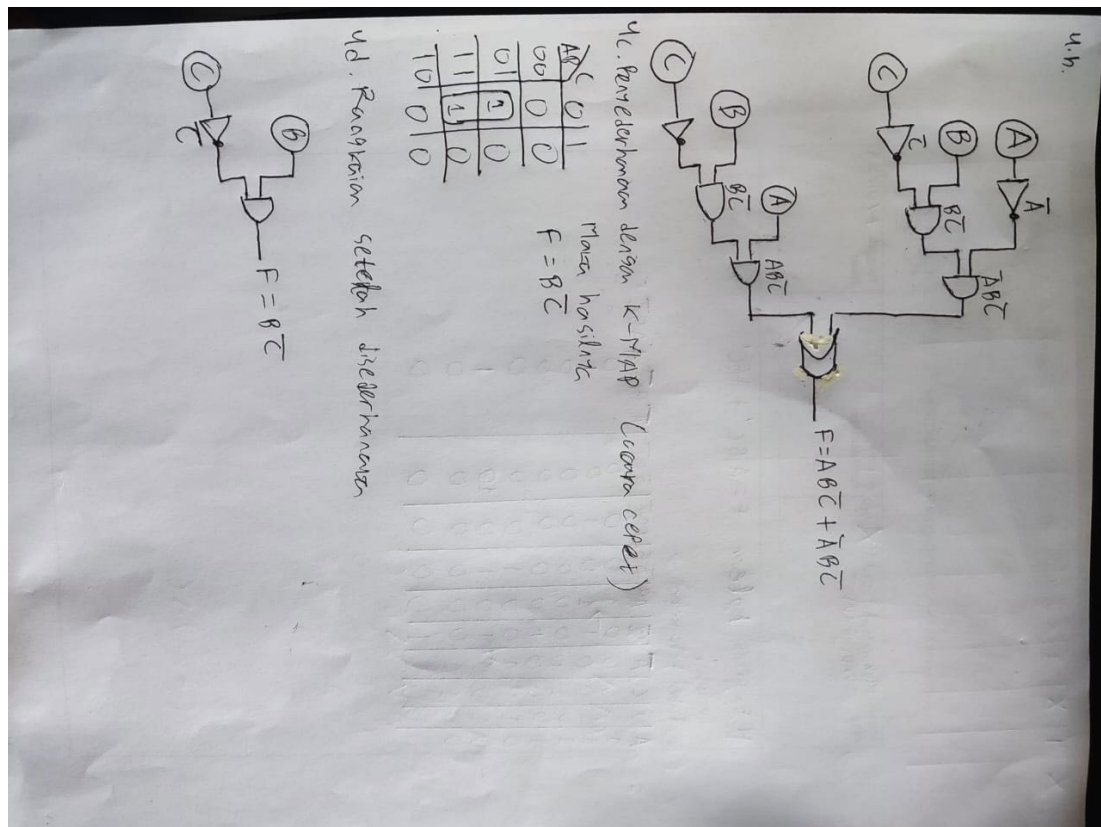 4.b.
A
Ā
B
C
C̅
BC̅
ĀBC̅
F=ABC̅ + ĀBC̅
A
B
C
BC̅
ABC̅
4c. Penyederhanaan dengan K-MAP (cara cepat)
AB C 0 1
00 0 0
01 1 0
11 1 0
10 0 0
Maka hasilnya
F = BC̅
4d. Rangkaian setelah disederhanakan
B
C
C̅
F = BC̅